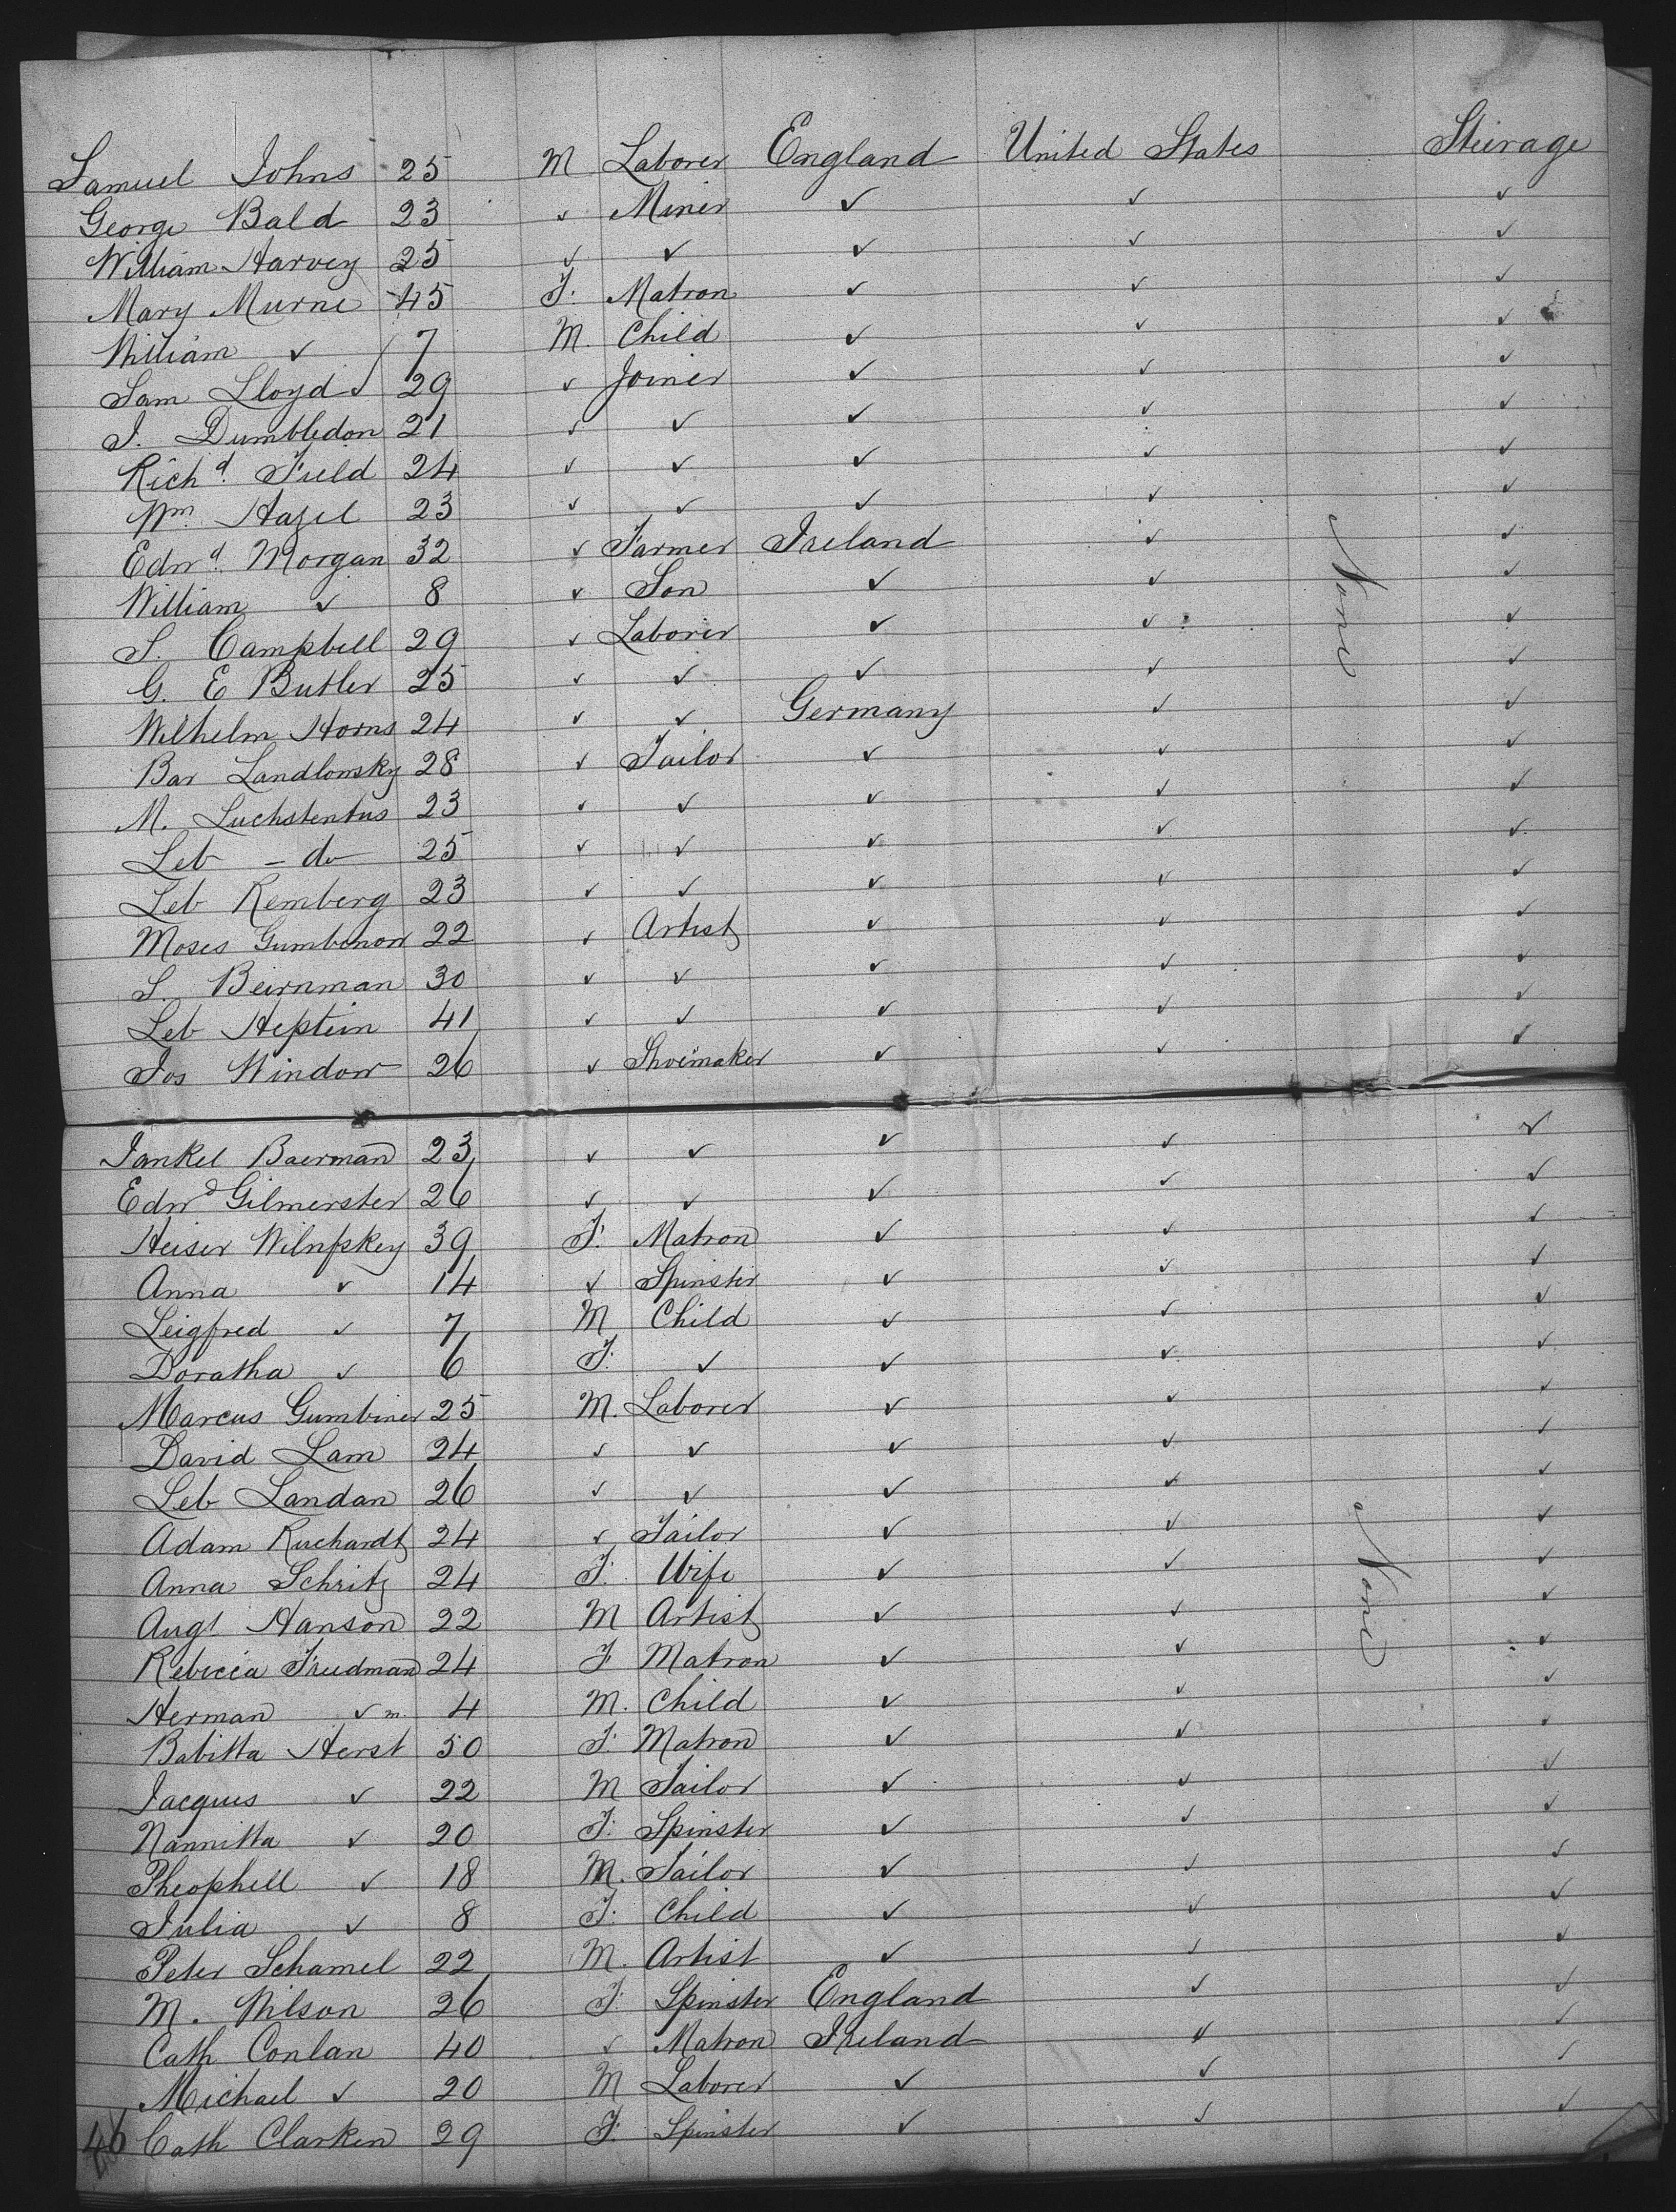 Samuel Johns 25 M Laborer England United States Steirage
George Bald 23 ✓ Miner ✓ ✓ ✓
William Harvey 25 ✓ ✓ ✓ ✓ ✓
Mary Murne 45 F. Matron ✓ ✓ ✓
William ✓ 7 M. Child ✓ ✓ ✓
Sam Lloyd 29 ✓ Joiner ✓ ✓ ✓
J. Dumbledon 21 ✓ ✓ ✓ ✓ ✓
Richd. Field 24 ✓ ✓ ✓ ✓ ✓
Wm. Hazel 23 ✓ ✓ ✓ ✓ ✓
Edwd. Morgan 32 ✓ Farmer Ireland ✓ None ✓
William ✓ 8 ✓ Son ✓ ✓ ✓
S. Campbell 29 ✓ Laborer ✓ ✓ ✓
G. E Butler 25 ✓ ✓ ✓ ✓ ✓
Wilhelm Horns 24 ✓ ✓ Germany ✓ ✓
Bar Landlomsky 28 ✓ Tailor ✓ ✓ ✓
M. Luchstentus 23 ✓ ✓ ✓ ✓ ✓
Leb - do 25 ✓ ✓ ✓ ✓ ✓
Leb Remberg 23 ✓ ✓ ✓ ✓ ✓
Moses Gumbenon 22 ✓ Artist ✓ ✓ ✓
S. Beirnman 30 ✓ ✓ ✓ ✓ ✓
Leb Heptein 41 ✓ ✓ ✓ ✓ ✓
Jos Window 26 ✓ Shoemaker ✓ ✓ ✓
Jankel Baerman 23 ✓ ✓ ✓ ✓ ✓
Edwd Gilmerster 26 ✓ ✓ ✓ ✓ ✓
Heiser Wilnfskey 39 F. Matron ✓ ✓ ✓
Anna ✓ 14 ✓ Spinster ✓ ✓ ✓
Leigfred ✓ 7 M Child ✓ ✓ ✓
Doratha ✓ 6 F. ✓ ✓ ✓ ✓
Marcus Gumbiner 25 M. Laborer ✓ ✓ ✓
David Lam 24 ✓ ✓ ✓ ✓ ✓
Leb Landan 26 ✓ ✓ ✓ ✓ ✓
Adam Ruchardt 24 ✓ Tailor ✓ ✓ None ✓
Anna Schritz 24 F. Wife ✓ ✓ ✓
Augt Hanson 22 M Artist ✓ ✓ ✓
Rebecca Freedman 24 F Matron ✓ ✓ ✓
Herman ✓ m. 4 M. Child ✓ ✓ ✓
Babitta Herst 50 F. Matron ✓ ✓ ✓
Jacques ✓ 22 M Tailor ✓ ✓ ✓
Nannitta ✓ 20 F. Spinster ✓ ✓ ✓
Theophell ✓ 18 M. Tailor ✓ ✓ ✓
Julia ✓ 8 F. Child ✓ ✓ ✓
Peter Schamel 22 M. Artist ✓ ✓ ✓
M. Wilson 26 F. Spinster England ✓ ✓
Cath Conlan 40 ✓ Matron Ireland ✓ ✓
Michael ✓ 20 M Laborer ✓ ✓ ✓
46 Cath Clarken 29 F. Spinster ✓ ✓ ✓